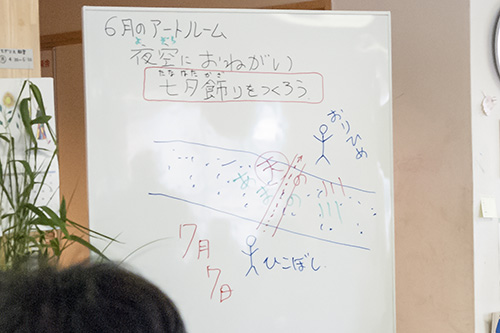 6月のアートルーム
よ ぞら
夜空におねがい
たなばた かざ
七夕飾りをつくろう
おりひめ
天の川
7月
7日
ひこぼし